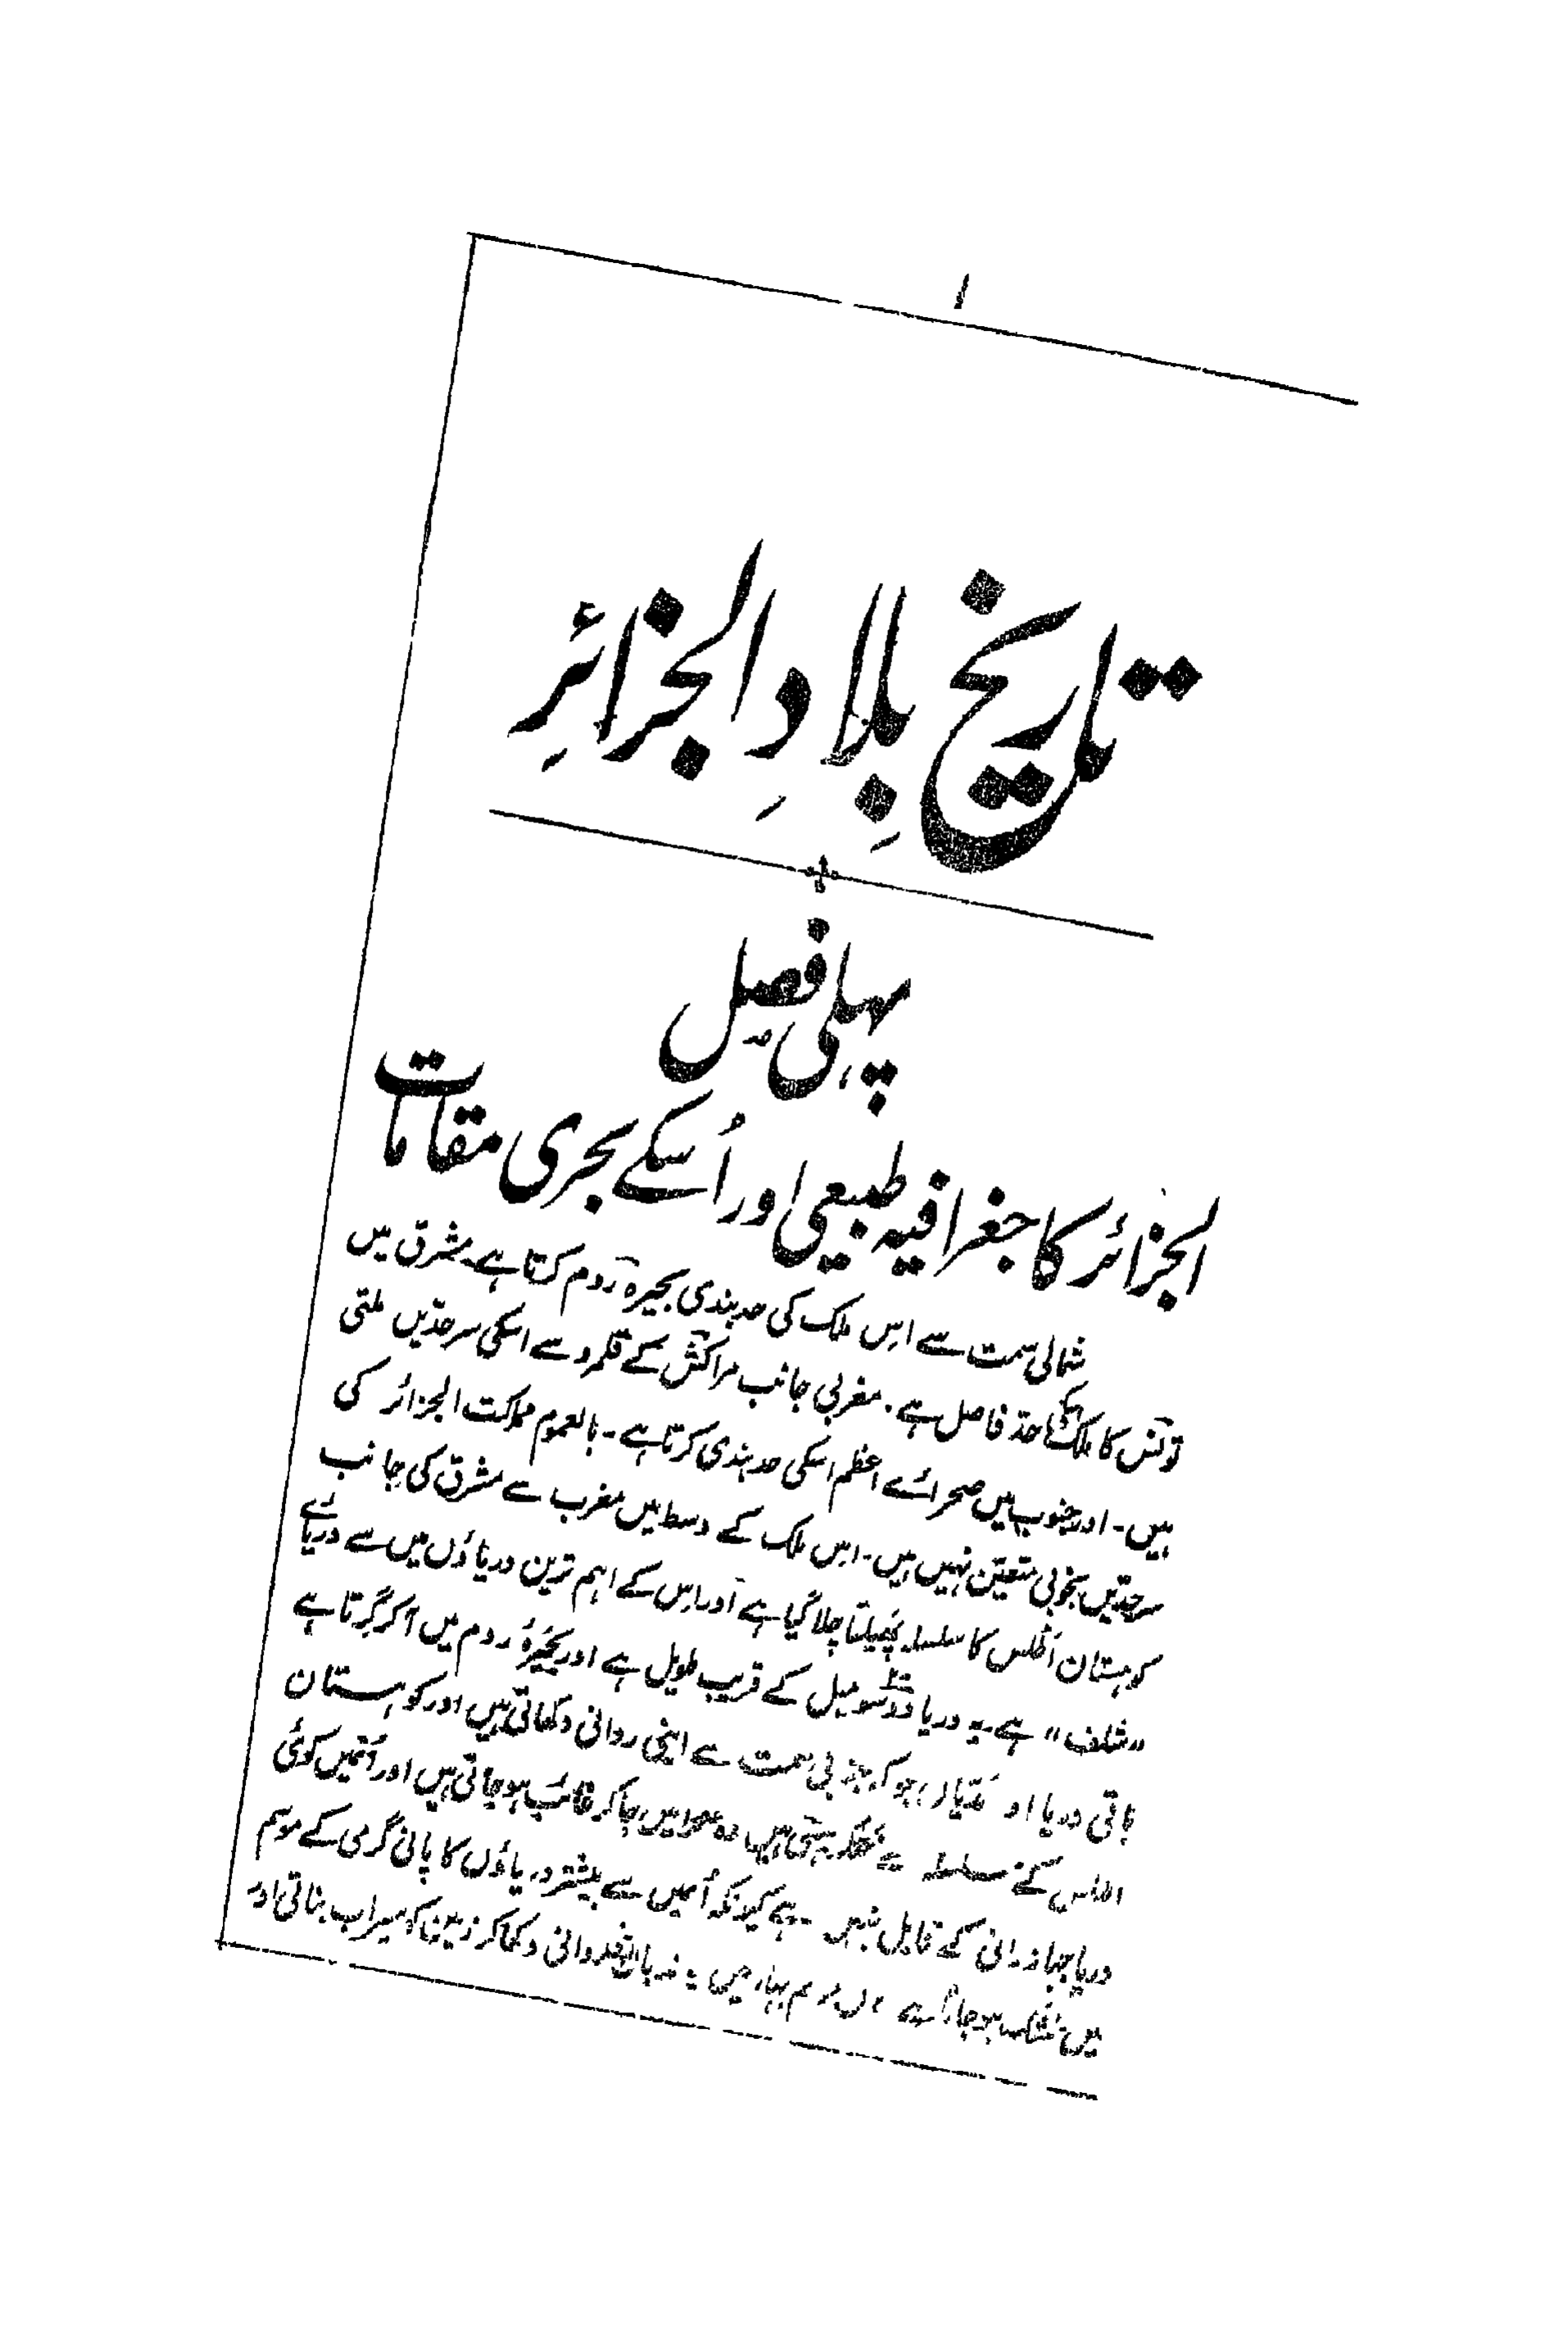 ۱
تاریخ بِلادِ الجزائرِ
پہلی فصل
الجزائر کا جغرافیہ طبیعی اور اُسکے بحری مقامات
شمالی سمت سے اس ملک کی حد بندی بحیرہ روم کرتا ہے۔ مشرق میں
تونس کا ملک اسکا حد فاصل ہے۔ مغربی جانب مراکش کے قلمرو سے اسکی سرحدیں ملتی
ہیں۔ اور جنوب میں صحرائے اعظم اسکی حد بندی کرتا ہے۔ بالعموم مملکت الجزائر کی
سرحدیں بخوبی متعین نہیں ہیں۔ اس ملک کے وسط میں مغرب سے مشرق کی جانب
کوہستان اطلس کا سلسلہ پھیلتا چلا گیا ہے اور اس کے اہم ترین دریاؤں میں سے دریائے
"شلف" ہے۔ یہ دریا سو میل کے قریب طویل ہے اور بحیرۂ روم میں آکر گرتا ہے
باقی دریا اور ندیاں جو کہ جنوبی سمت سے اپنی روانی دکھاتی ہیں اور کوہستان
اطلس کے سلسلہ سے ہیں وہ صحرا میں جا کر غائب ہو جاتی ہیں اور اُنمیں کوئی
دریا جہازرانی کے قابل نہیں ہے کیونکہ اُنمیں سے بیشتر دریاؤں کا پانی گرمی کے موسم
میں خشک ہو جاتا ہے موسم بہار میں روانی دکھا کر زمین کو سیراب بناتی اور